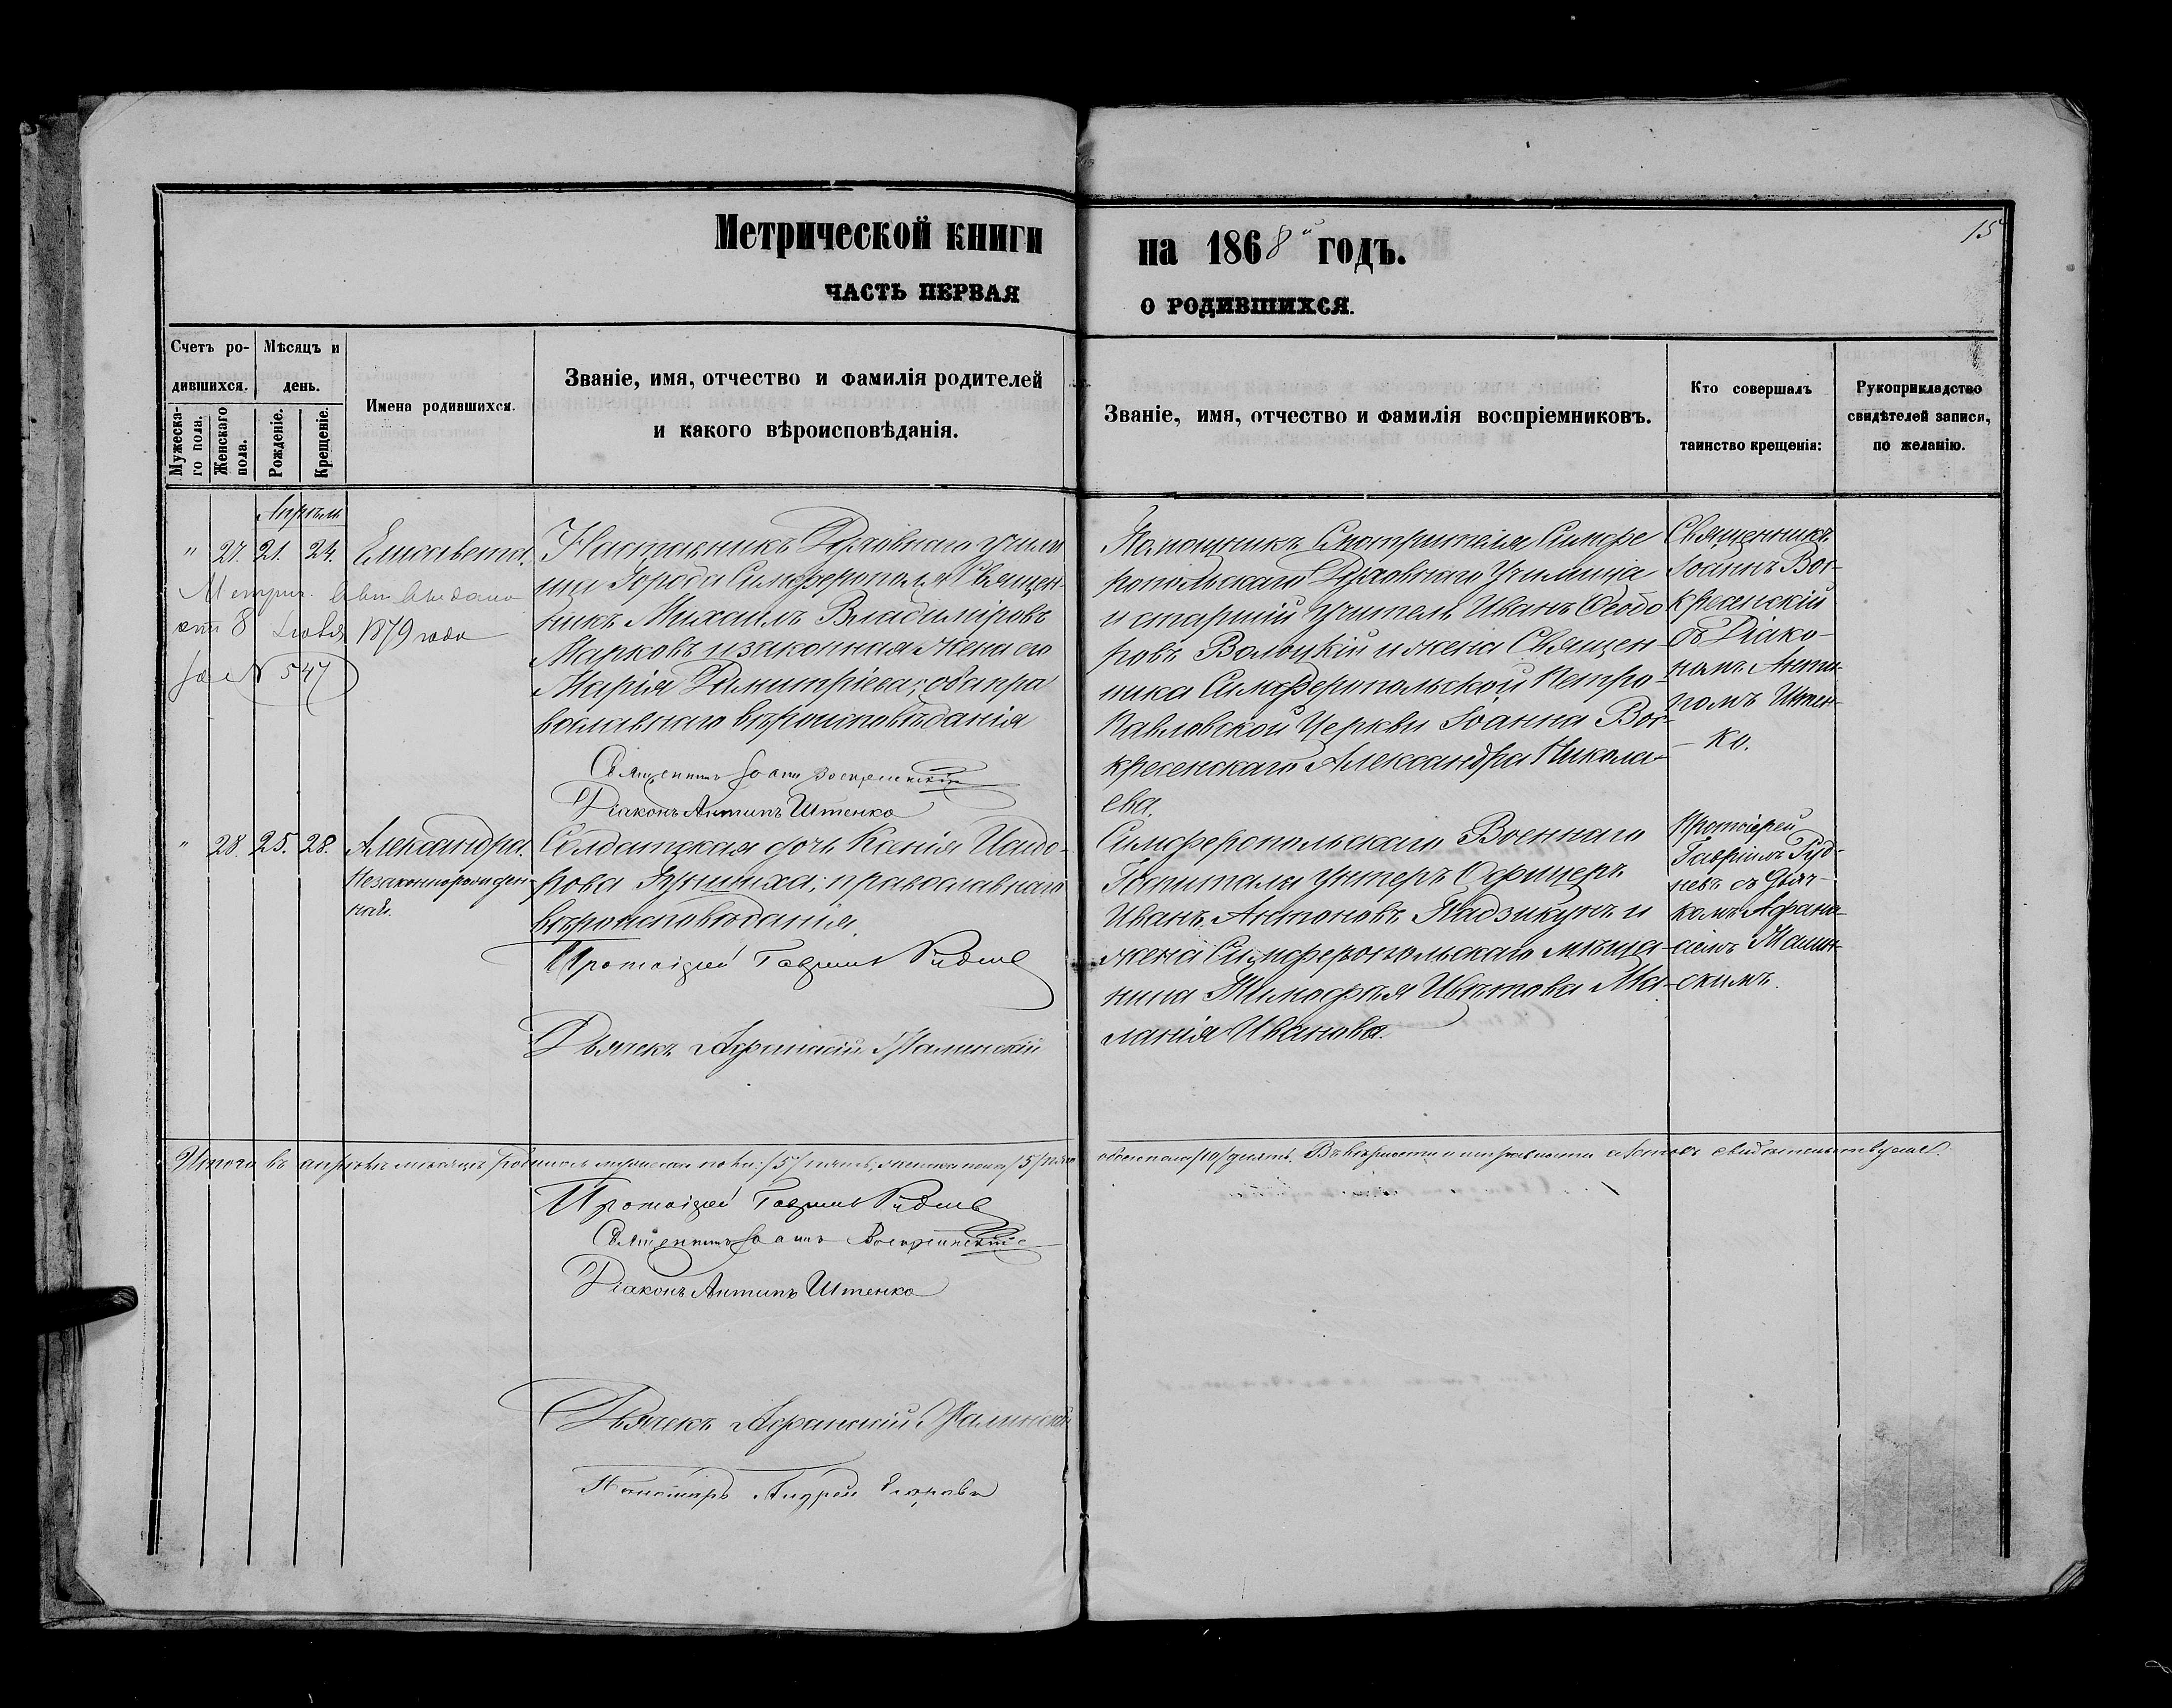 Метрической книги
на 1868й годъ.
15
ЧАСТЬ ПЕРВАЯ
О РОДИВШИХСЯ.
Счетъ ро-
дившихся.
Мужеска-
го пола.
Женскаго
пола.
Мѣсяцъ и
день.
Рожденіе.
Крещеніе.
Имена родившихся.
Званіе, имя, отчество и фамилія родителей
и какого вѣроисповѣданія.
Званіе, имя, отчество и фамилія воспріемниковъ.
Кто совершалъ
таинство крещенія:
Рукоприкладство
свидѣтелей записи,
по желанію.
Апрѣль
" 27. 21. 24. Елисавета.
Метрич. выдано
отъ 8 1879 года
за № 547
Наставникъ Духовнаго Учили
ща Города Симферополя Священ-
никъ Михаилъ Владиміровъ
Марковъ и законная жена его
Марія Димитріева; оба пра
вославнаго вѣроисповѣданія
Священникъ Іоаннъ Воскресенскій
Діаконъ Антипъ Штенко
Помощникъ Смотрителя Симфе
ропольскаго Духовнаго Училища
и старшій Учитель Иванъ Ѳеодо
ровъ Волоцкій и жена Священ-
ника Симферопольской Петро-
Павловской Церкви Іоанна Вос-
кресенскаго Александра Никола-
ева.
Священникъ
Іоаннъ Вос-
кресенскій
съ Діако-
номъ Анти-
помъ Штен-
ко.
" 28. 25. 28. Александра.
Незаконнорожден-
ная.
Солдатская дочь Ксенія Исидо-
рова православнаго
вѣроисповѣданія.
Протоіерей Гавріилъ Руднев
Дьячекъ Афанасій Малинскій
Симферопольскаго Военнаго
Госпиталя Унтеръ Офицеръ
Иванъ Антоновъ Надзикунъ и
жена Симферопольскаго мѣща-
нина Тимофѣя Цвѣткова Ма-
ланія Иванова.
Протоіерей
Гавріилъ Руд-
невъ съ Дьяч-
комъ Афана-
сіемъ Малин-
скимъ.
Итого въ апрѣлѣ мѣсяцѣ родилось мужескаго пола /5/ пять, женска пола /5/ пять
обоего пола /10/ десять. Въ вѣрности свидѣтельствуемъ.
Протоіерей Гавріилъ Руднев
Священникъ Іоаннъ Воскресенскій
Діаконъ Антипъ Штенко
Дьячекъ Афанасій Малинскій
Пономарь Андрей